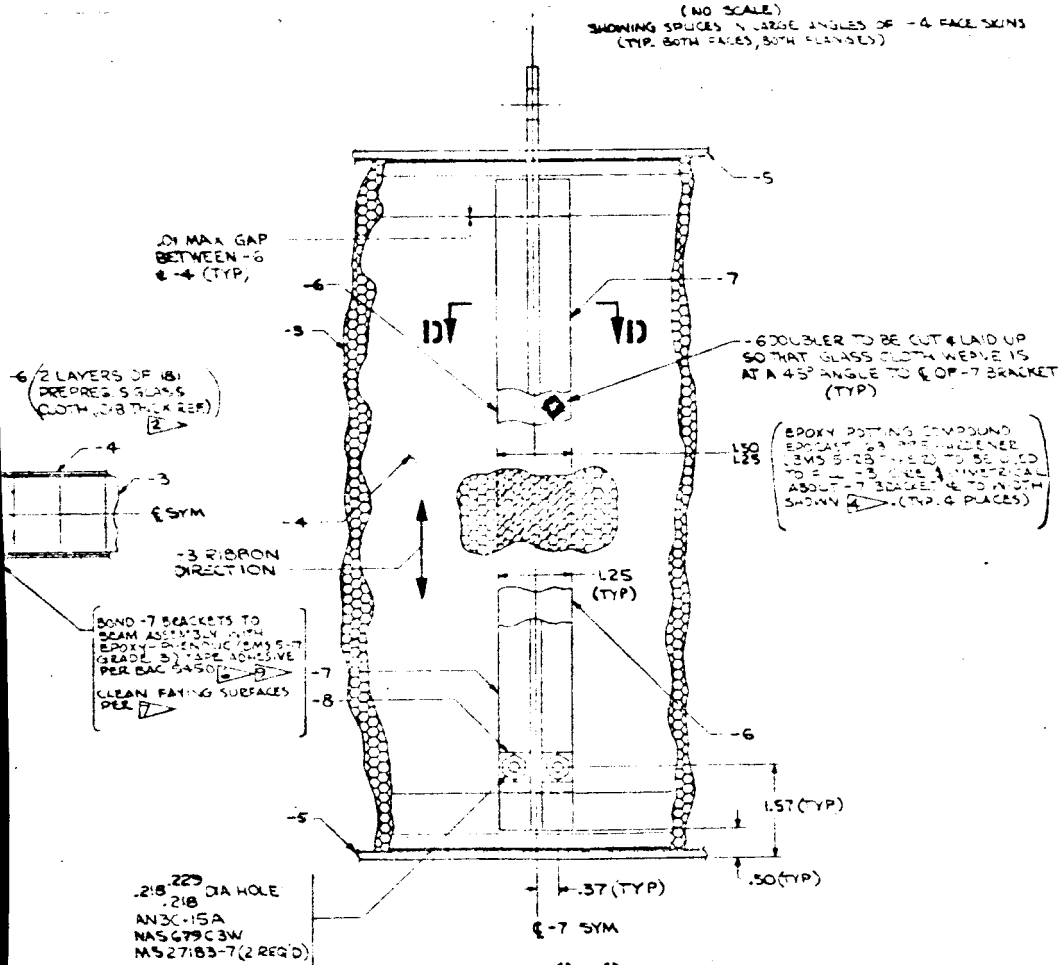 (NO SCALE)
SHOWING SPLICES LARGE ANGLES OF -4 FACE SKINS
(TYP. BOTH FACES, BOTH FLANGES)
-5
.01 MAX GAP
BETWEEN -6
& -4 (TYP)
-6
-7
-3
D D
-6 DOUBLER TO BE CUT & LAID UP
SO THAT GLASS CLOTH WEAVE IS
AT A 45° ANGLE TO ℄ OF -7 BRACKET
(TYP)
-6 (2 LAYERS OF 181
PREPREG GLASS
CLOTH THICK REF)
2
-4
-3
℄ SYM
1.50
1.25
EPOXY POTTING COMPOUND
EPOCAST HARDENER
TO BE USED
TO -3
ABOUT -7 BRACKET ℄ TO WIDTH
SHOWN 4 (TYP. 4 PLACES)
-4
-3 RIBBON
DIRECTION
1.25
(TYP)
BOND -7 BRACKETS TO
BEAM ASSEMBLY WITH
EPOXY-PHENOLIC (BMS 5-17
GRADE 3) TAPE ADHESIVE
PER BAC 5450 6 9
CLEAN FAYING SURFACES
PER 7
-7
-8
-6
1.57 (TYP)
-5
.50 (TYP)
.37 (TYP)
℄ -7 SYM
.218 .229 DIA HOLE
.218
AN3C-15A
NAS679C3W
MS27183-7 (2 REQ'D)